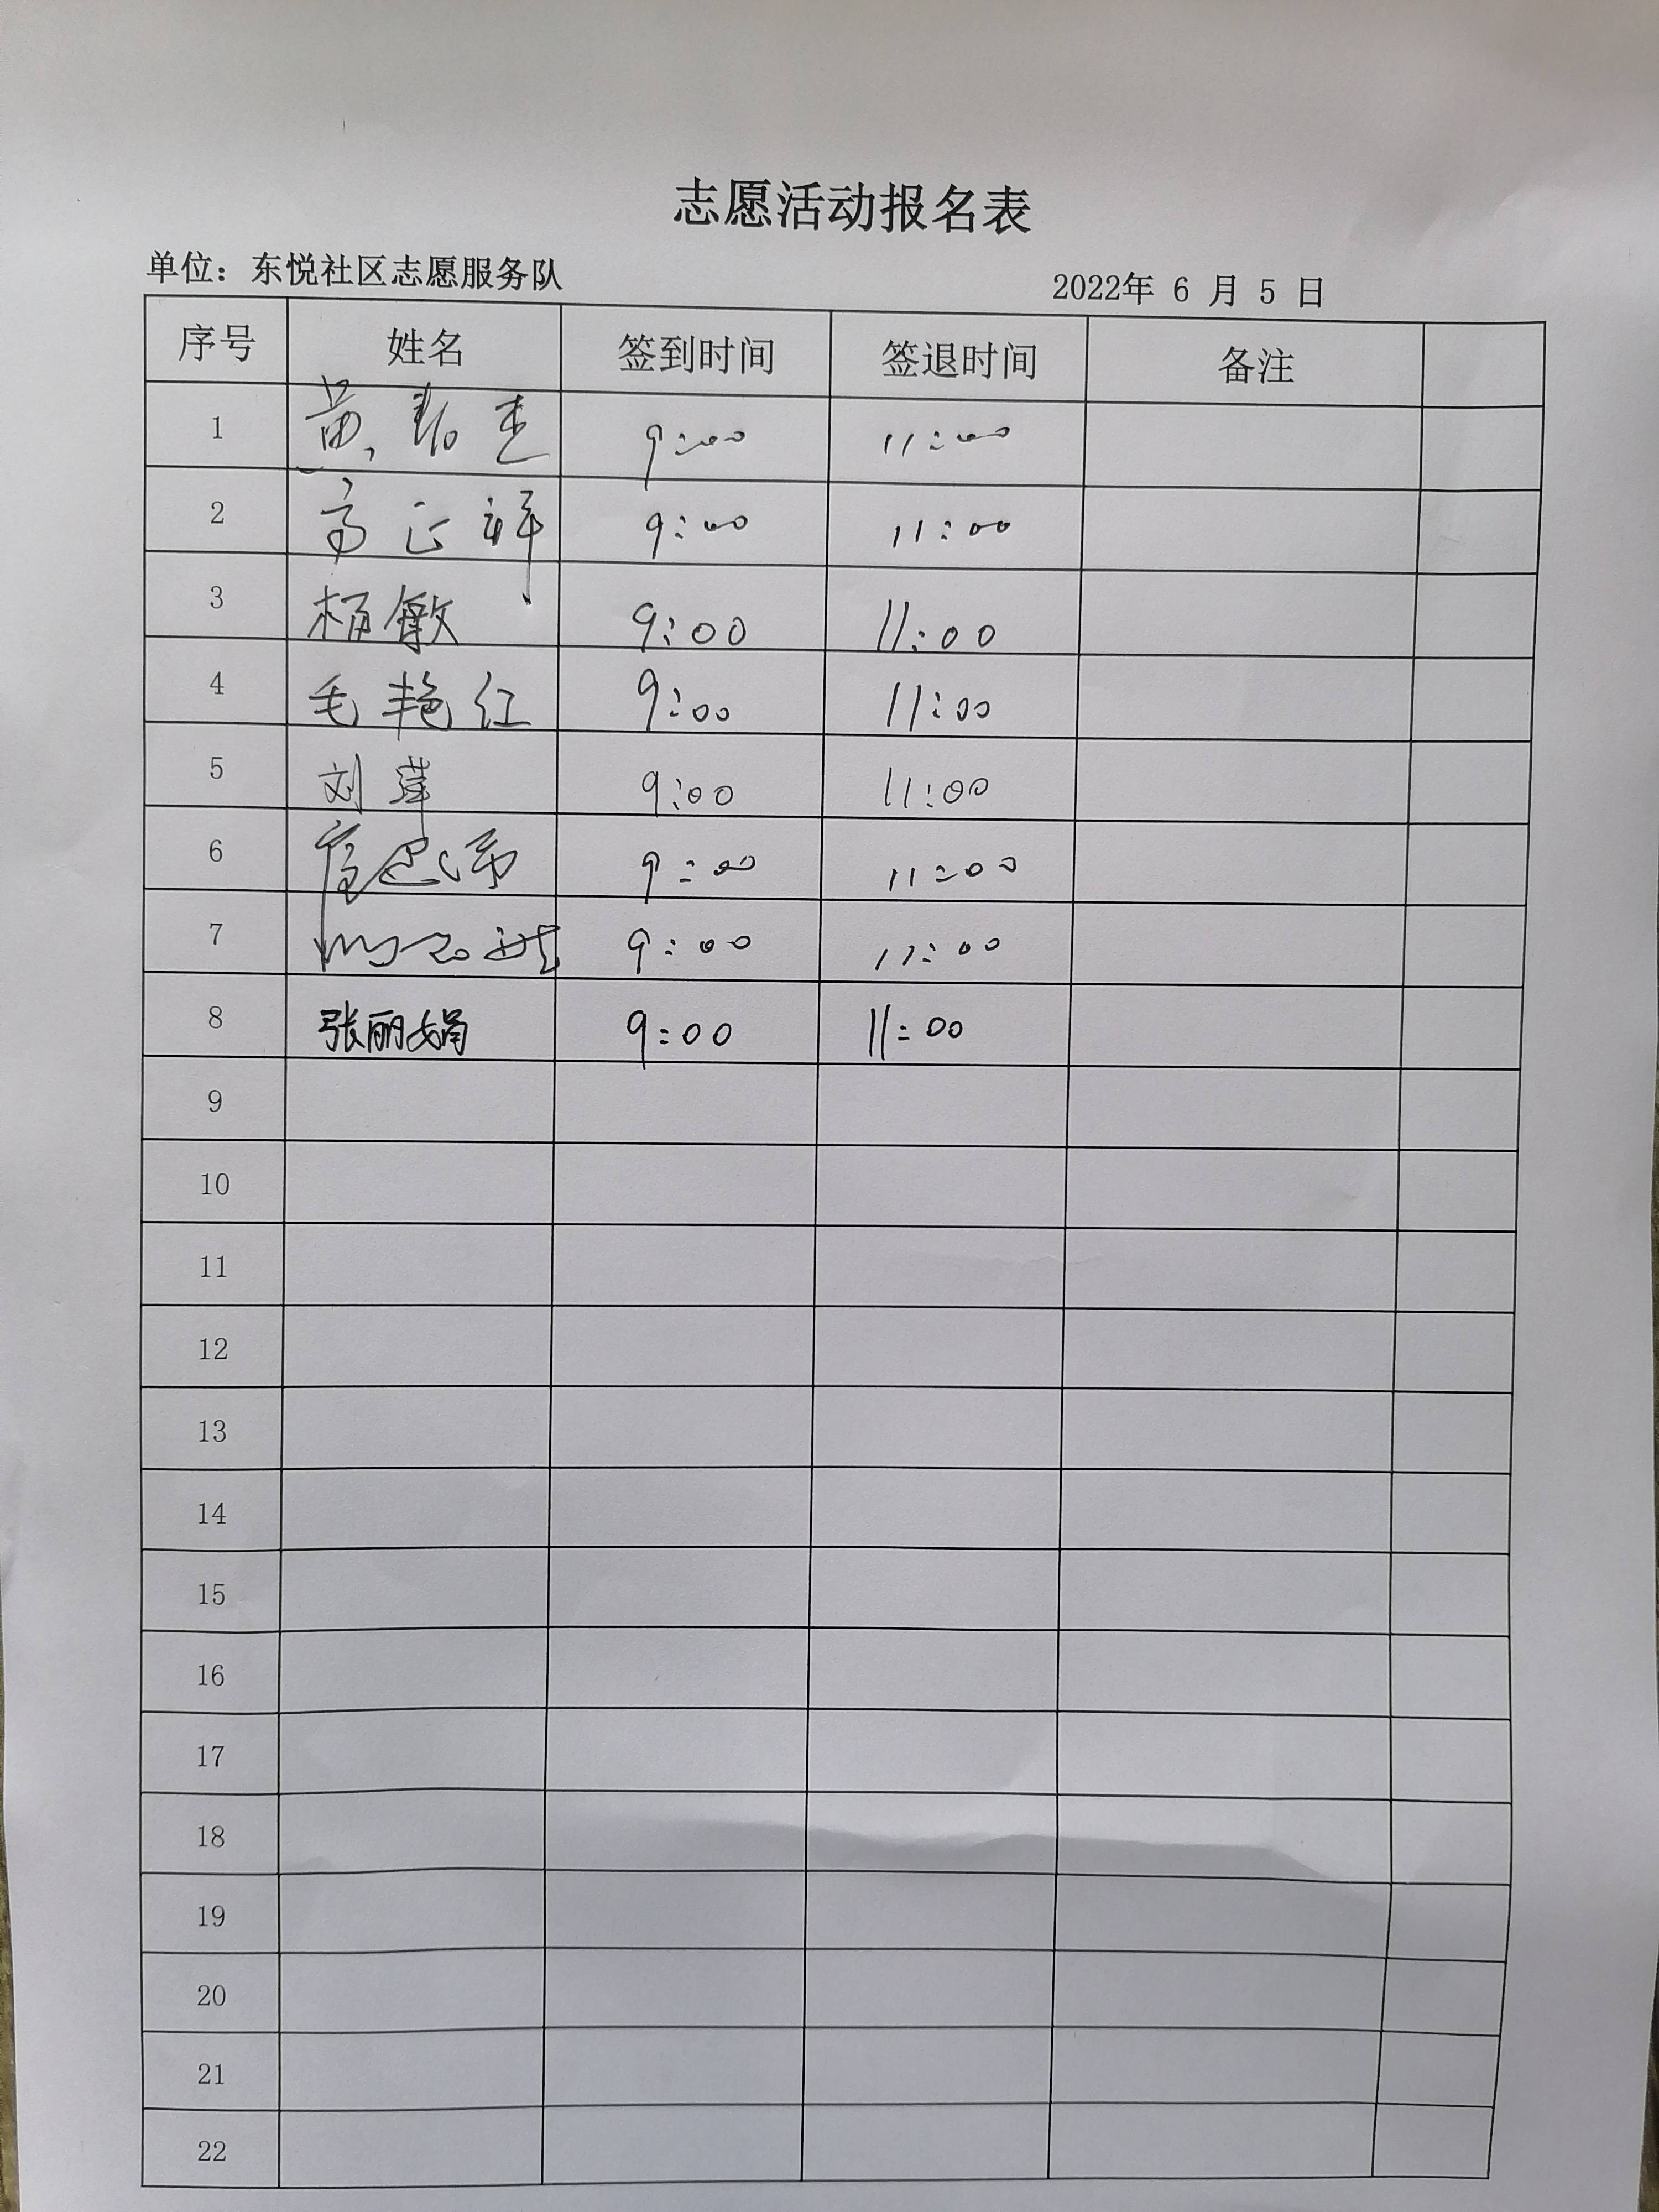 志愿活动报名表
单位：东悦社区志愿服务队 2022年 6 月 5 日
序号 姓名 签到时间 签退时间 备注
1 黄 9:00 11:00
2 高正祥 9:00 11:00
3 杨敏 9:00 11:00
4 毛艳红 9:00 11:00
5 刘萍 9:00 11:00
6 9:00 11:00
7 9:00 11:00
8 张丽娟 9:00 11:00
9
10
11
12
13
14
15
16
17
18
19
20
21
22